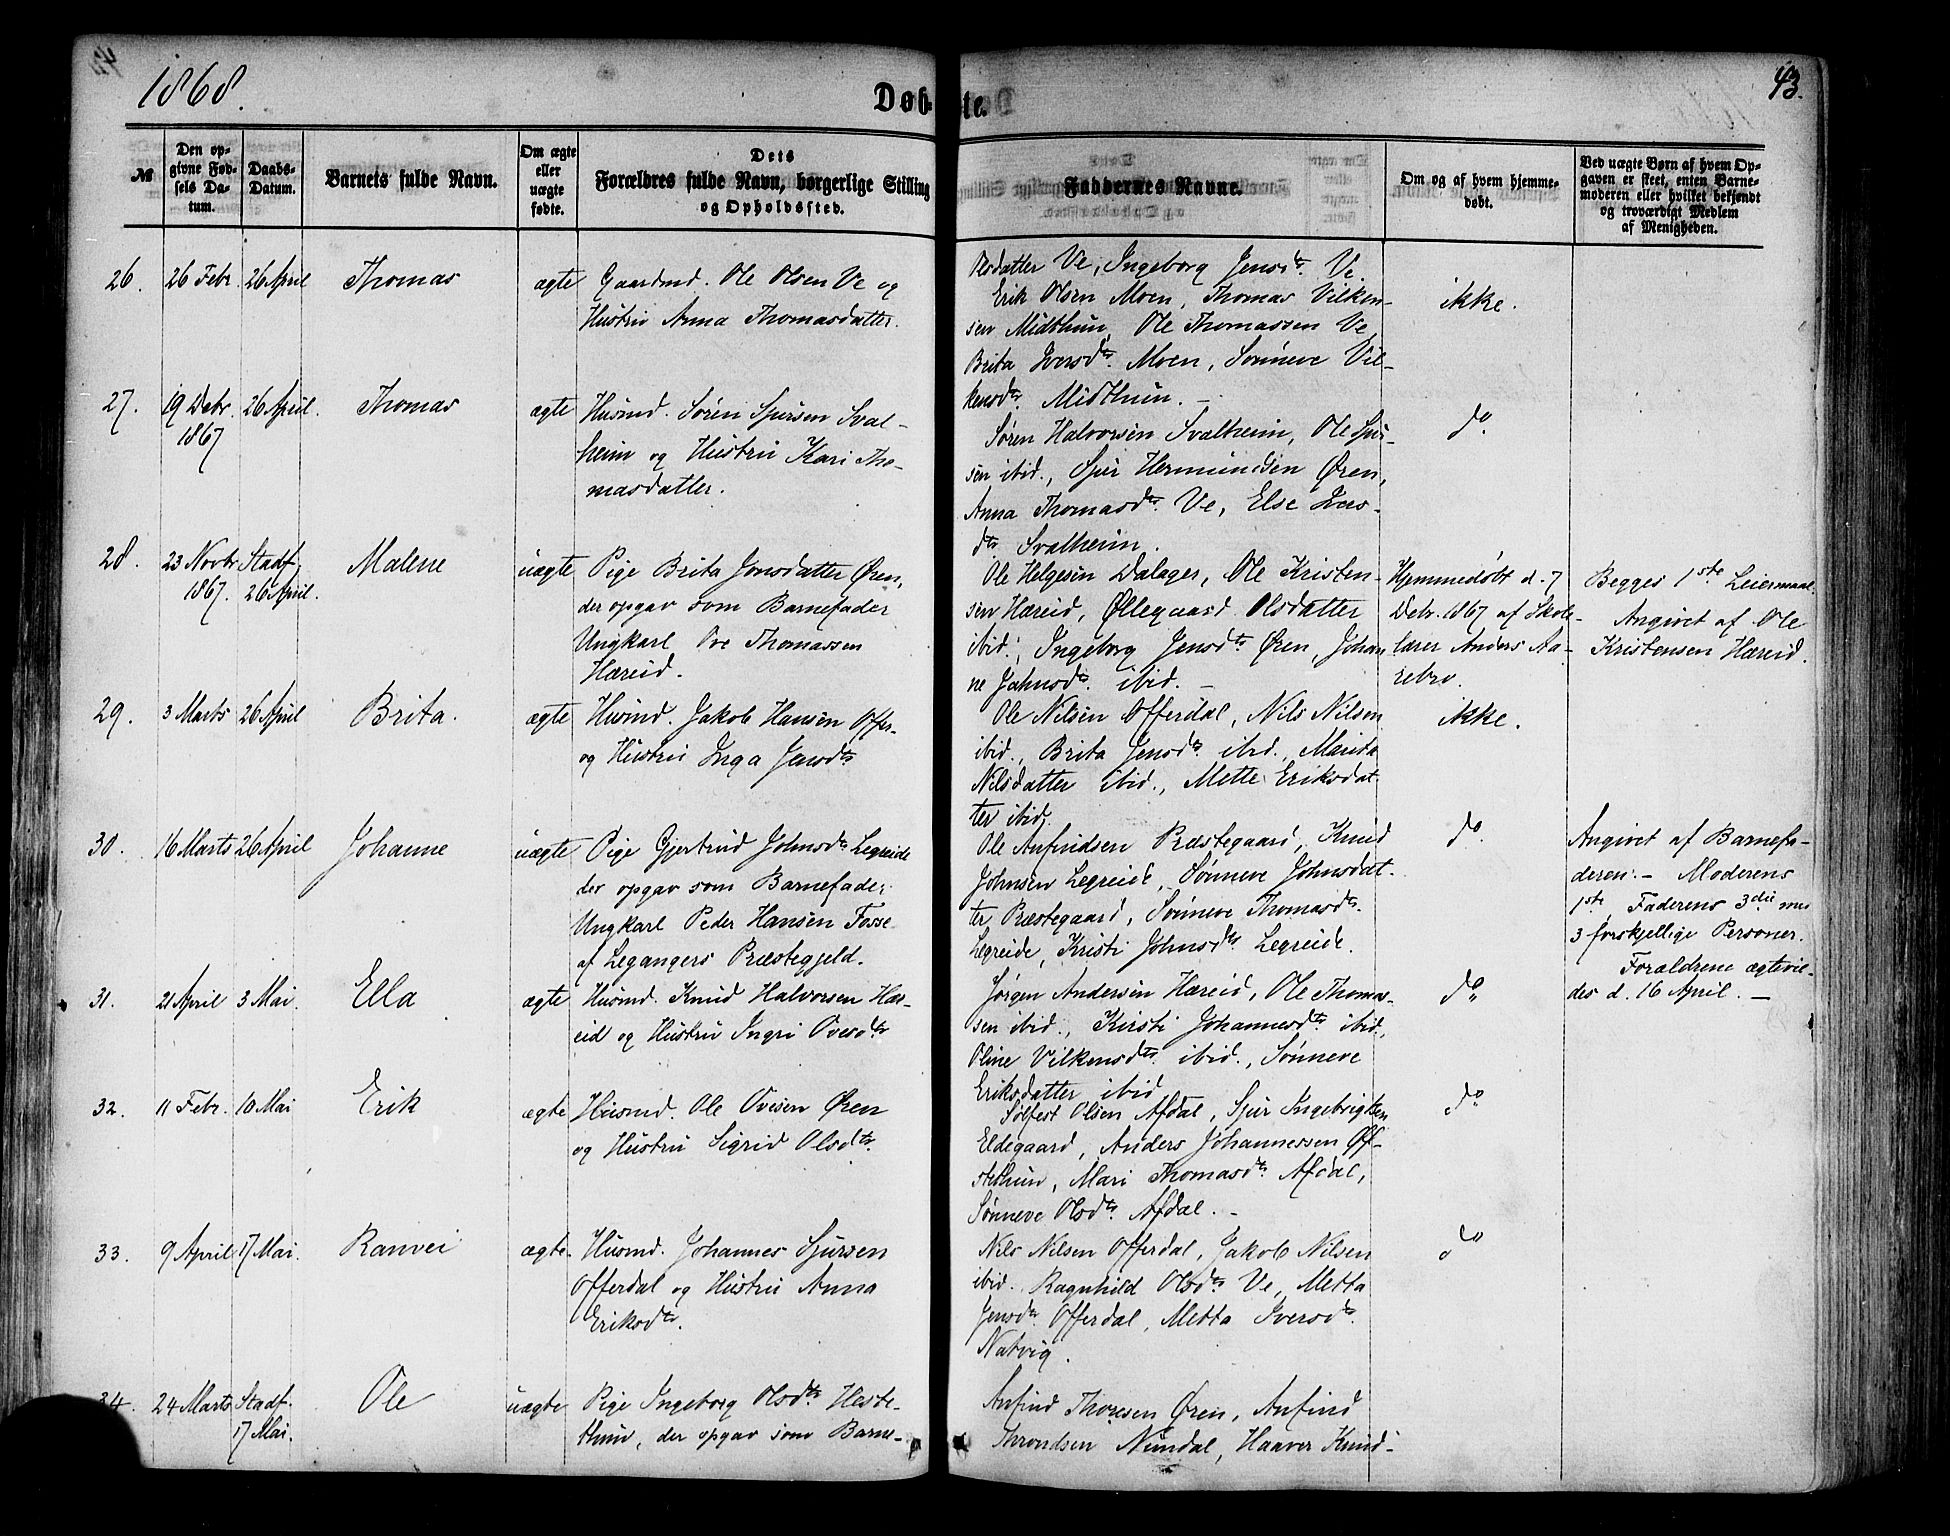 1868.
Døb-
te.
43.
№
Den op-
givne Fød-
sels Da-
tum.
Daabs-
Datum.
Barnets fulde Navn.
Om ægte
eller
uægte
fødte.
Dets
Forældres fulde Navn, borgerlige Stilling
og Opholdssted.
Faddernes Navne.
Om og af hvem hjemme-
døbt.
Ved uægte Børn af hvem Op-
gaven er skeet, enten Barne-
moderen eller hvilket bekjendt
og troværdigt Medlem
af Menigheden.
Olsdatter Ve, Ingeborg Jensdtr. Ve.
26. 26 Febr. 26 April Thomas ægte Gaardmd. Ole Olsen Ve og
Hustru Anna Thomasdatter.
Erik Olsen Moen, Thomas Vilken-
sen Midthun, Ole Thomassen Ve
Brita Iversdtr. Moen, Sønneve Vil-
kensdtr. Midthun. -
ikke.
27. 19 Debr. 26 April. Thomas ægte Husmd. Søren Sjursen Sval-
1867
heim og Hustru Kari Tho-
masdatter.
Søren Halvorsen Svalheim, Ole Sjur-
sen ibid., Sjur Hermundsen Øren,
Anna Thomasdtr. Ve, Else Lars-
dtr Svalheim.
do.
28. 23 Novbr Stadf. Malene uægte Pige Brita Jonsdatter Øren,
1867. 26 April. der opgav som Barnefader
Ungkarl Ove Thomassen
Hæreid.
Ole Helgesen Dalager, Ole Kristen-
sen Hæreid, Øllegaard Olsdatter
ibid., Ingeborg Jensdtr Øren, Johan
ne Jahnsdtr. ibid. -
Hjemmedøbt d. 7
Debr. 1867 af Skole-
lærer Anders Aa-
rebro.
Begges 1ste Leiermaal.
Angivet af Ole
Kristensen Hæreid.
29. 3 Marts 26 April Brita. ægte Husmd. Jakob Hansen Offer-
og Hustru Inga Jensdtr
Ole Nilsen Offerdal, Nils Nilsen
ibid., Brita Jensdtr. ibid., Marita
Nilsdatter ibid., Mette Eriksdat-
ter ibid.
ikke.
30. 16 Marts 26 April Johanne uægte Pige Gjertrud Johnsdtr Legreide
der opgav som Barnefader
Ungkarl Peder Hansen Fosse
af Legangers Præstegjeld.
Ole Anfindsen Præstegaard, Knud
Johnsen Legreide, Sønneve Johnsdat-
ter Præstegaard, Sønneve Thomasdtr.
Legreide, Kristi Johnsdtr. Legreide.
do.
Angivet af Barnefa-
deren. - Moderens
1ste Faderens 3die med
3 forskjellige Personer.
Forældrene ægtevie-
des d. 16 April. -
31. 21 April 3 Mai. Ella ægte Husmd. Knud Halvorsen Hæ-
eid og Hustru Ingri Ovesdtr
Jørgen Andersen Hæreid, Ole Thomas-
sen ibid., Kirsti Johannesdtr. ibid.,
Oline Vilkensdtr. ibid., Sønneve
Eriksdatter ibid
do
32. 11 Febr. 10 Mai Erik ægte Husmd. Ole Ovesen Øren
og Hustru Sigrid Olsdtr.
Sølfest Olsen Afdal, Sjur Ingebrigtsen
Eldegaard, Anders Johannessen Øf-
stethun, Mari Thomasdtr. Afdal,
Sønneve Olsdtr. Afdal. -
do
33. 9 April 17 Mai. Ranvei ægte. Husmd. Johannes Sjursen
Offerdal og Hustru Anna
Eriksdtr.
Nils Nilsen Offerdal, Jakob Nilsen
ibid. Ragnhild Olsdtr Ve, Metta
Jensdtr Offerdal, Metta Iversdtr.
Natvig.
do
34. 24 Marts Stadf. Ole uægte Pige Ingeborg Olsdtr. Heste-
17 Mai. thun, der opgav som Barne-
Anfind Thoresen Øren, Anfind
Throndsen Nundal, Haaver Knud-